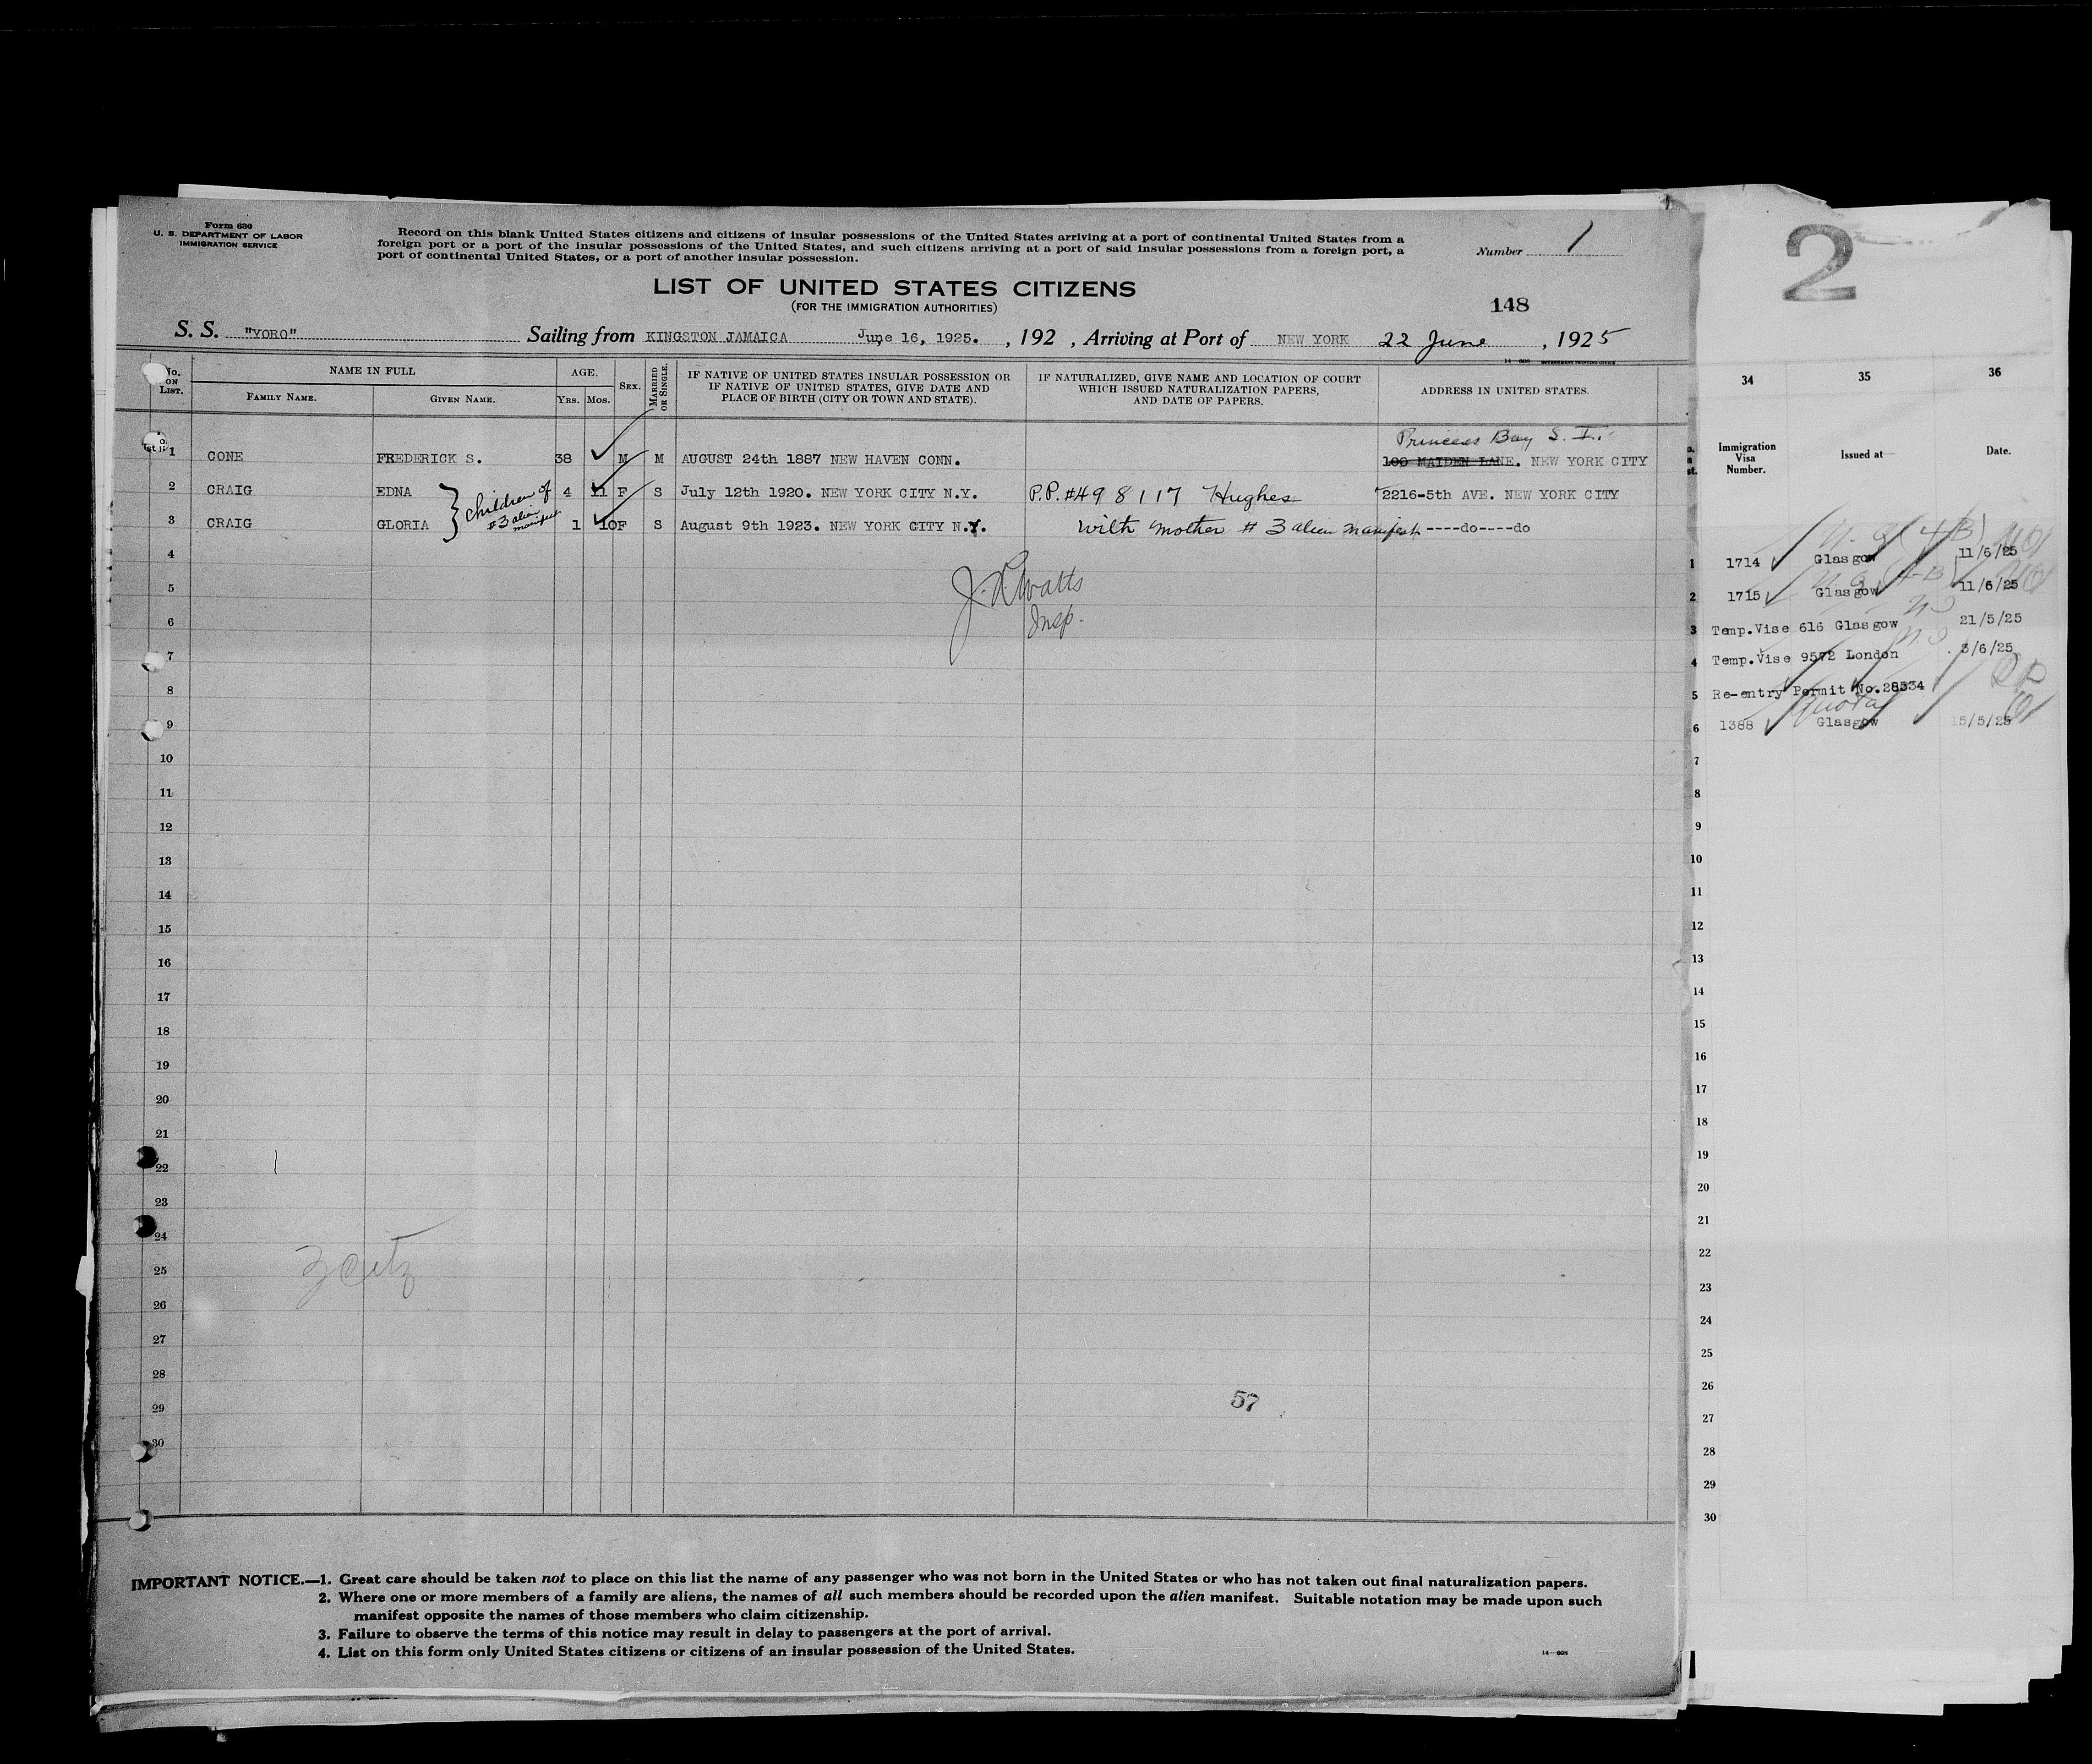 Form 630
U. S. DEPARTMENT OF LABOR
IMMIGRATION SERVICE
Record on this blank United States citizens and citizens of insular possessions of the United States arriving at a port of continental United States from a
foreign port or a port of the insular possessions of the United States, and such citizens arriving at a port of said insular possessions from a foreign port, a
port of continental United States, or a port of another insular possession.
Number 1
LIST OF UNITED STATES CITIZENS
(FOR THE IMMIGRATION AUTHORITIES)
148
S. S. "YORO" Sailing from KINGSTON JAMAICA June 16, 1925. , 192 , Arriving at Port of NEW YORK 22 June , 1925
No. ON LIST. NAME IN FULL FAMILY NAME. GIVEN NAME. AGE. Yrs. Mos. SEX. MARRIED OR SINGLE.
IF NATIVE OF UNITED STATES INSULAR POSSESSION OR
IF NATIVE OF UNITED STATES, GIVE DATE AND
PLACE OF BIRTH (CITY OR TOWN AND STATE).
IF NATURALIZED, GIVE NAME AND LOCATION OF COURT
WHICH ISSUED NATURALIZATION PAPERS,
AND DATE OF PAPERS.
ADDRESS IN UNITED STATES.
Princess Bay S. I.
1 CONE FREDERICK S. 38 M M AUGUST 24th 1887 NEW HAVEN CONN. 100 MAIDEN LANE. NEW YORK CITY
2 CRAIG EDNA 4 11 F S July 12th 1920. NEW YORK CITY N.Y. P.P. #498117 Hughes 2216-5th AVE. NEW YORK CITY
Children of
#3 alien
manifest
3 CRAIG GLORIA 1 10 F S August 9th 1923. NEW YORK CITY N.Y. With mother # 3 alien manifest ----do----do
4
5
6
7
8
9
10
11
12
13
14
15
16
17
18
19
20
21
22
23
24
25
26
27
28
29
30
J. R. Watts
Insp.
3 Citz
57
IMPORTANT NOTICE.—1. Great care should be taken not to place on this list the name of any passenger who was not born in the United States or who has not taken out final naturalization papers.
2. Where one or more members of a family are aliens, the names of all such members should be recorded upon the alien manifest. Suitable notation may be made upon such
manifest opposite the names of those members who claim citizenship.
3. Failure to observe the terms of this notice may result in delay to passengers at the port of arrival.
4. List on this form only United States citizens or citizens of an insular possession of the United States.
2
34 35 36
Immigration
Visa
Number.
Issued at
Date.
1 1714 Glasgow 11/6/25
2 1715 Glasgow 11/6/25
3 Temp.Vise 616 Glasgow 21/5/25
4 Temp.Vise 9572 London 3/6/25
5 Re-entry Permit No.28534
Quota
6 1388 Glasgow 15/5/25
7
8
9
10
11
12
13
14
15
16
17
18
19
20
21
22
23
24
25
26
27
28
29
30